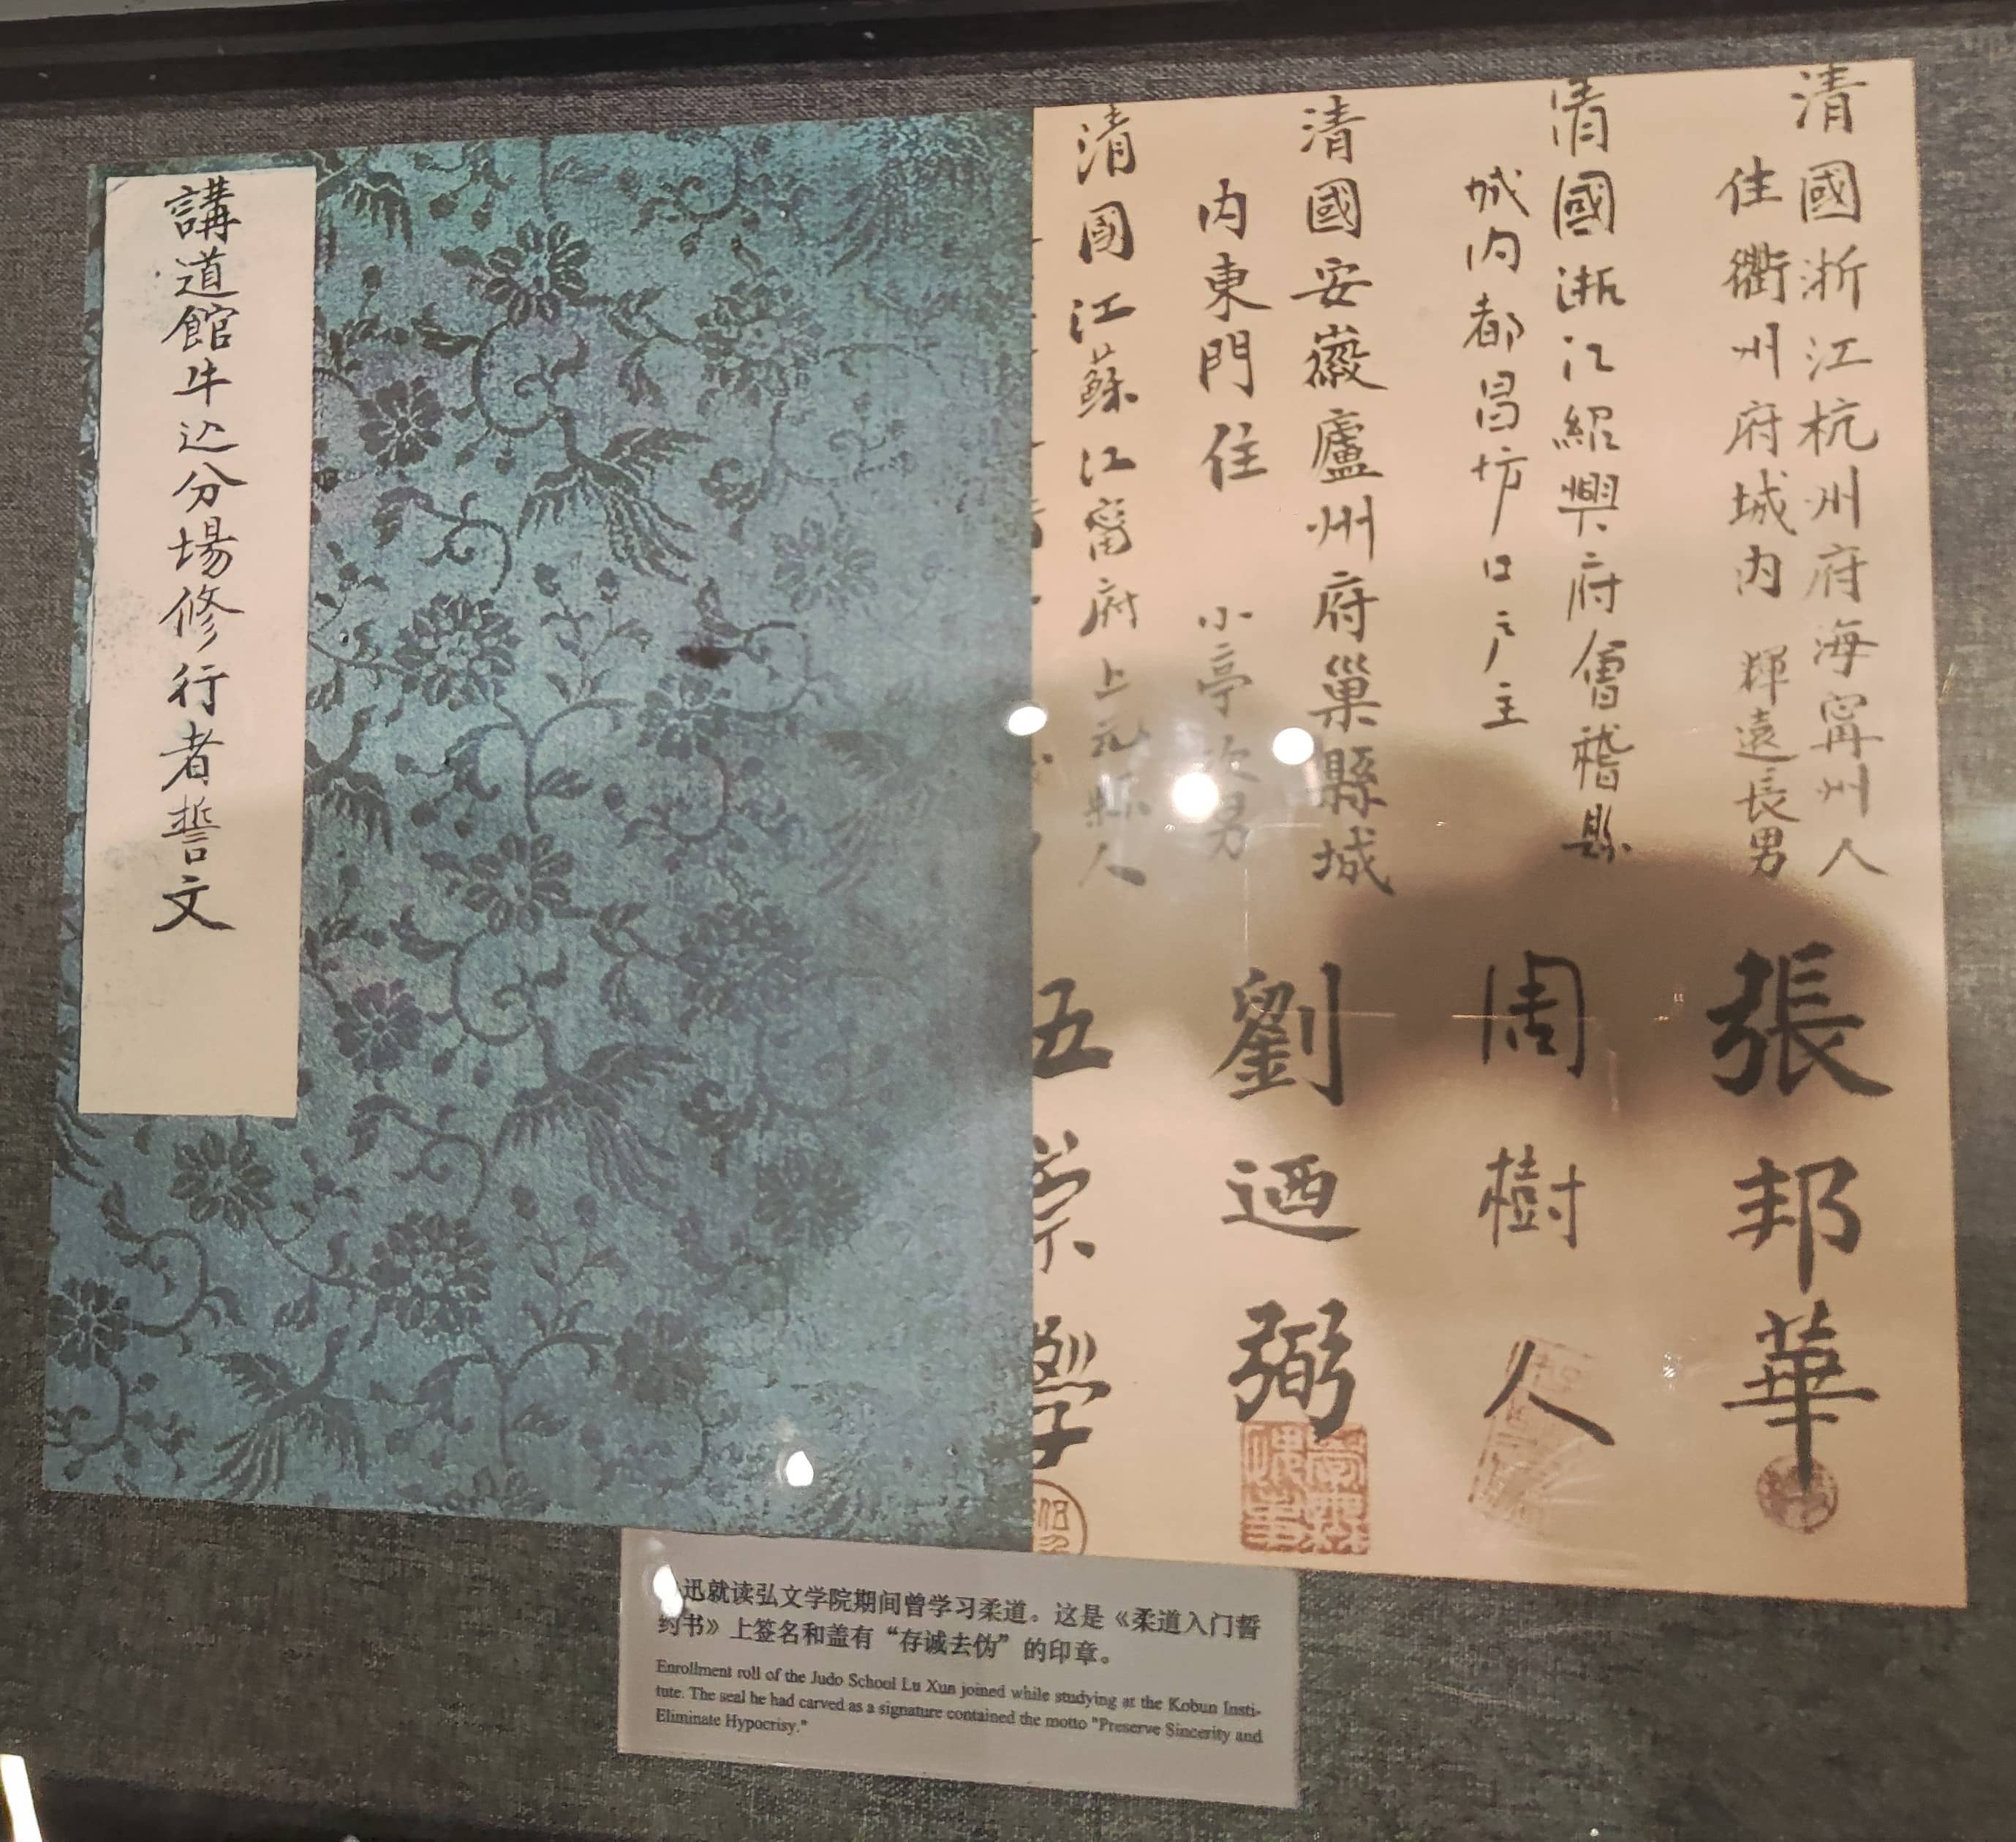 講道館牛込分場修行者誓文
清國浙江杭州府海甯州人
住衢州府城内 輝遠長男
張邦華
清國浙江紹興府會稽縣
城内都昌坊口户主
周樹人
清國安徽廬州府巢縣城
内東門住 小亭次男
劉迺弼
清國江蘇江甯府上元縣人
五 學
迅就读弘文学院期间曾学习柔道。这是《柔道入门誓
约书》上签名和盖有“存诚去伪”的印章。
Enrollment roll of the Judo School Lu Xun joined while studying at the Kobun Insti-
tute. The seal he had carved as a signature contained the motto "Preserve Sincerity and
Eliminate Hypocrisy."